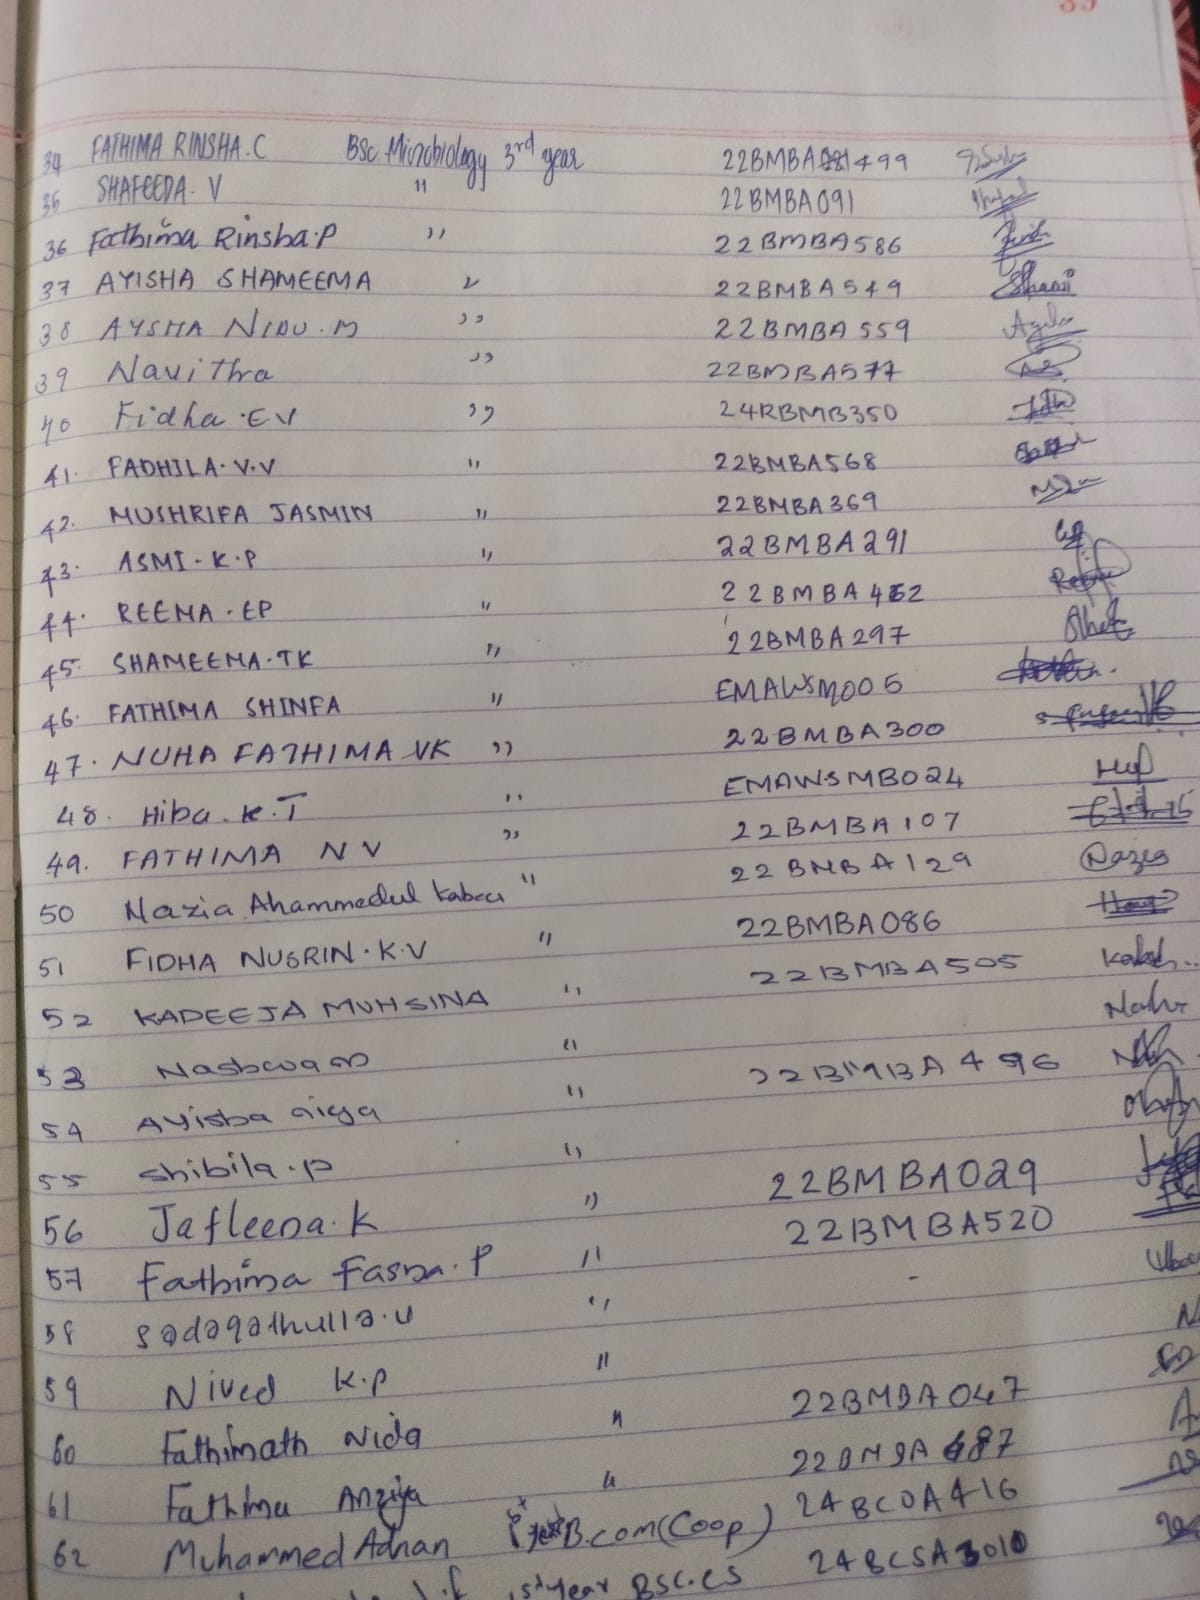 35
34 FATHIMA RINSHA.C BSc Microbiology 3rd year 22BMBA499
35 SHAFEEDA. V " 22BMBA091
36 Fathima Rinsha.P " 22BMBA586
37 AYISHA SHAMEEMA " 22BMBA549 Shami
38 AYSHA NIDU.M " 22BMBA559
39 Navitha " 22BMBA577
40 Fidha.EV " 24RBMB350
41. FADHILA.V.V " 22BMBA568
42. MUSHRIFA JASMIN " 22BMBA369
43. ASMI.K.P " 22BMBA291
44. REEMA.EP " 22BMBA462
45. SHAMEEMA.TK " 22BMBA297
46. FATHIMA SHINFA " EMAWSM005
47. NUHA FATHIMA VK " 22BMBA300
48. Hiba.K.T " EMAWSMB024
49. FATHIMA N V " 22BMBA107
50 Nazia Ahammedul Kabeer " 22BMBA129
51 FIDHA NUSRIN.K.V " 22BMBA086
52 KADEEJA MUHSINA " 22BMBA505
53 "
54 Ayisha " 22BMBA496
55 Shibila.p "
56 Jafleena.K " 22BMBA029
57 Fathima Fasna.P " 22BMBA520
58 Sadaqathulla.U " -
59 Nived K.P "
60 Fathimath Nida " 22BMBA047
61 Fathima Anziya " 22BMBA487
62 Muhammed Adnan B.com(Coop) 24BCOA416
1st year BSC.CS 24BCSA3010